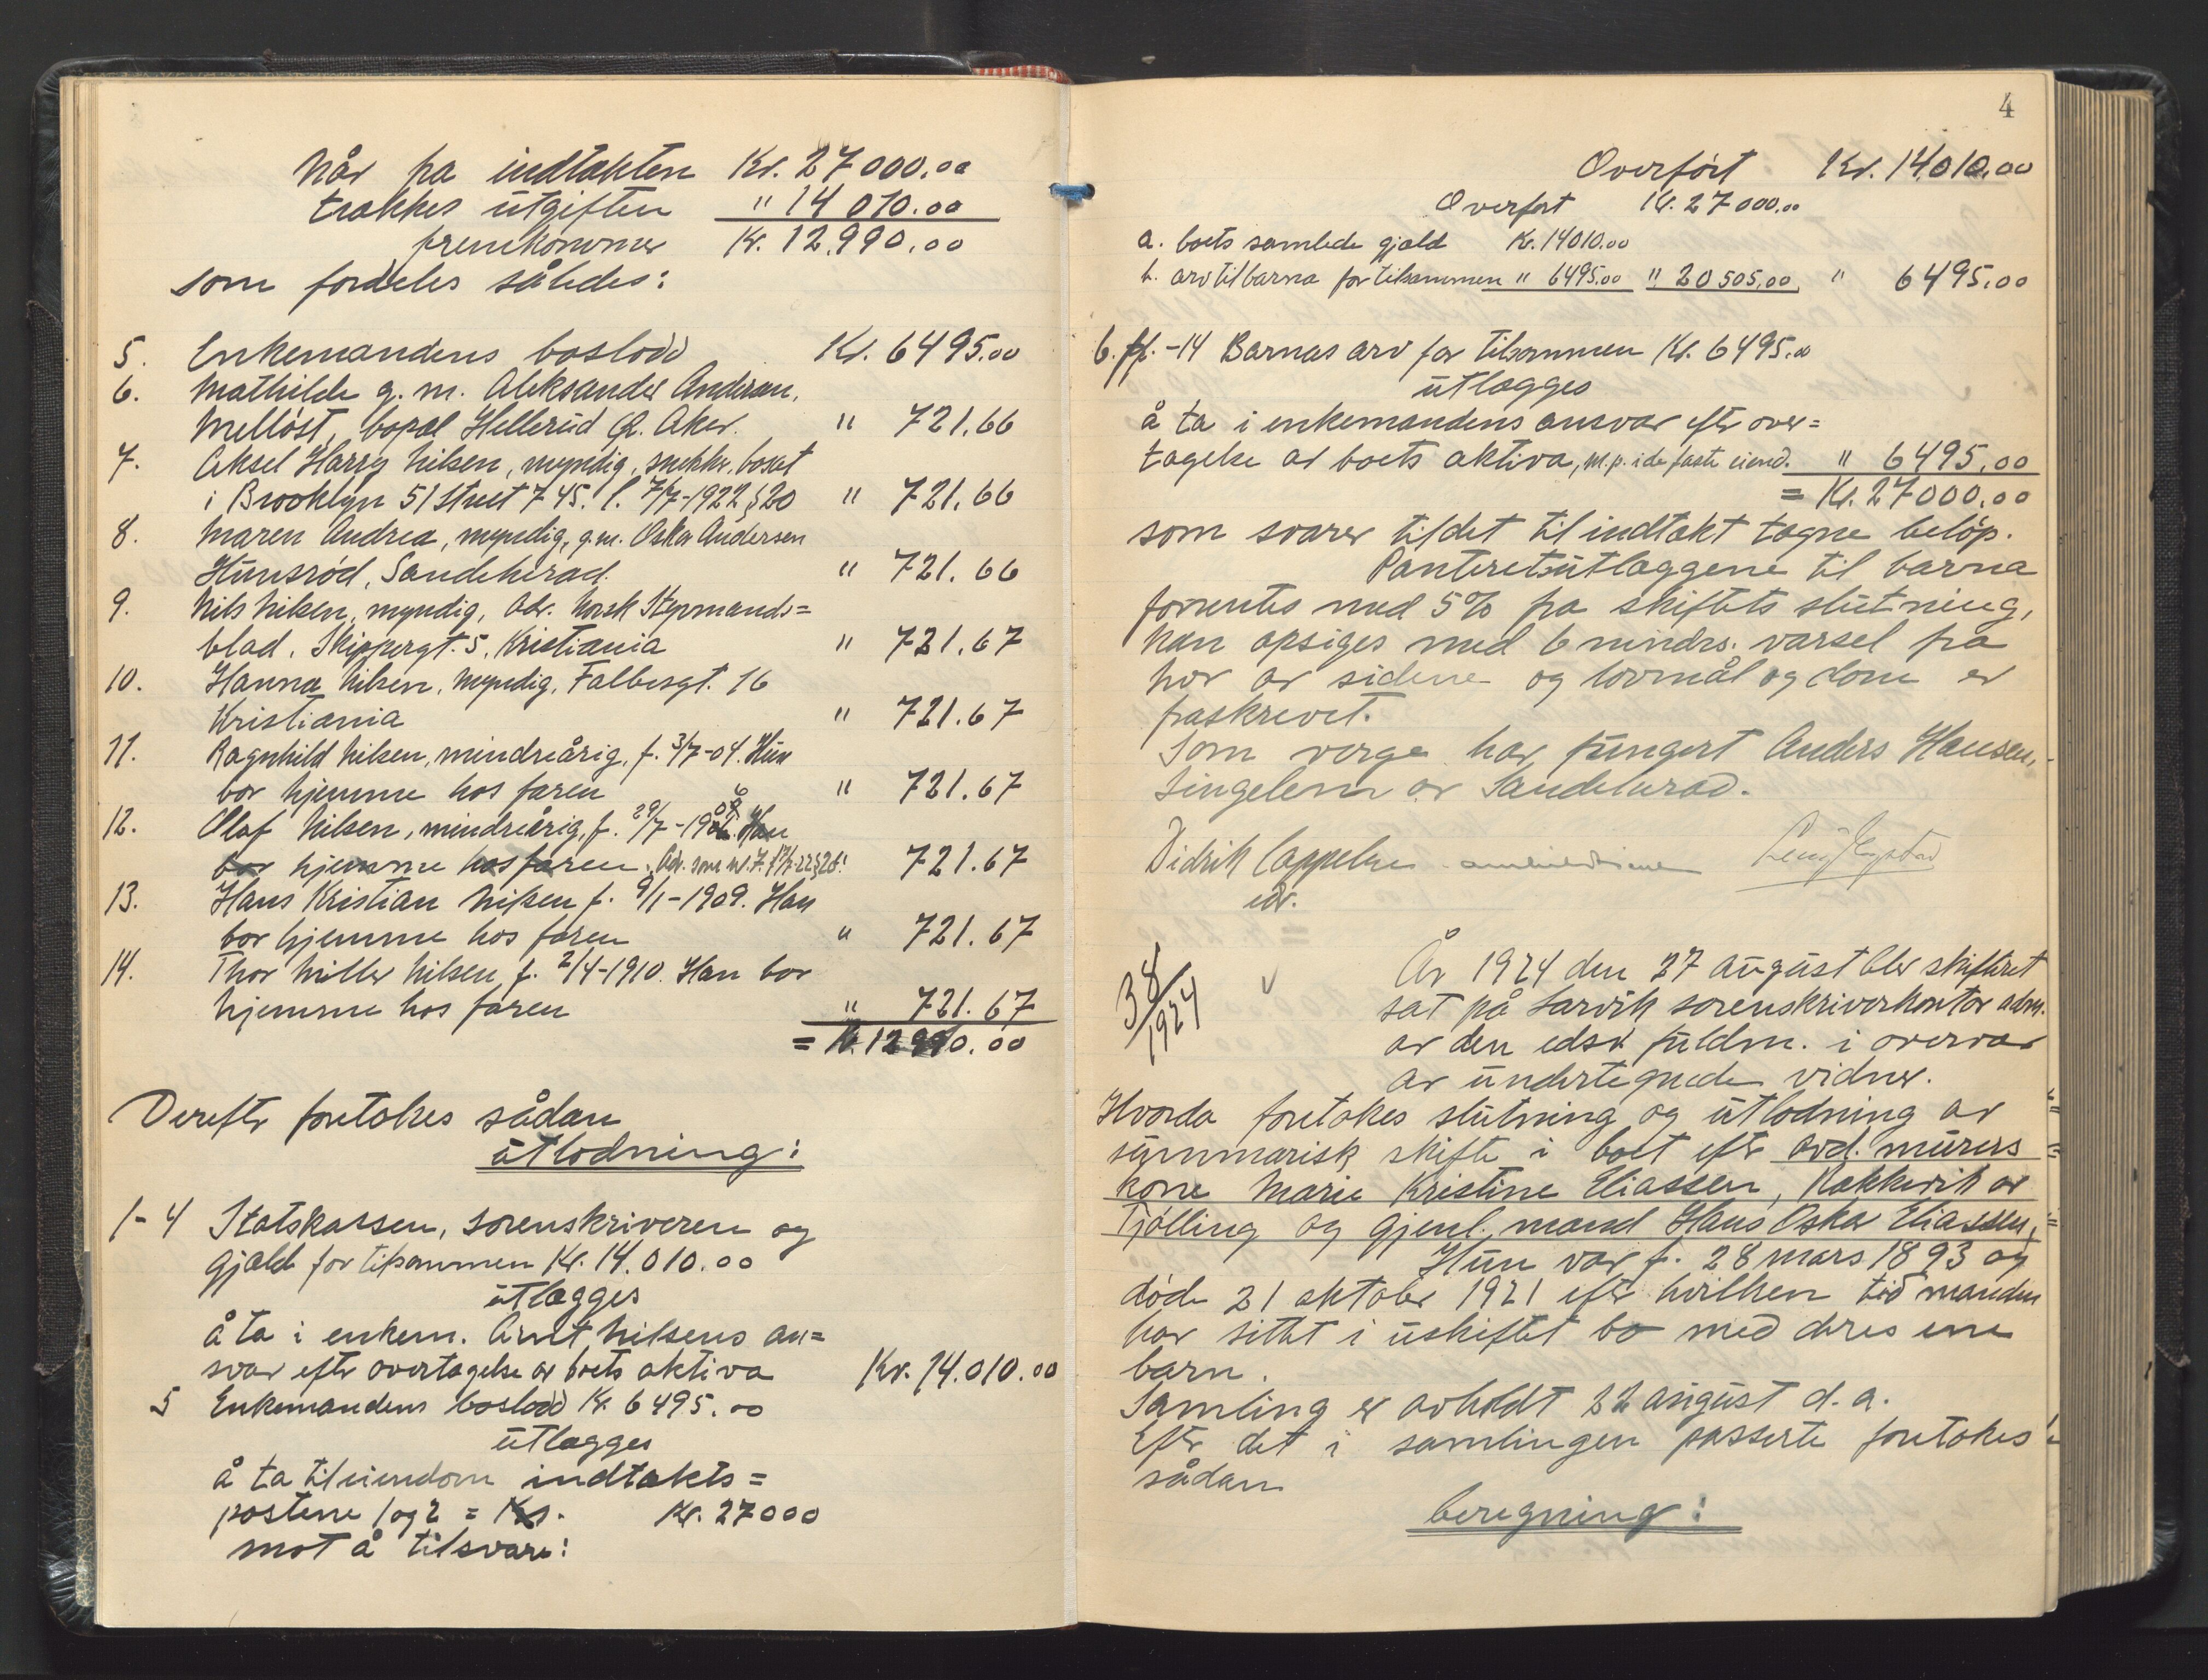 Når fra indtækten Kr. 27000.00
trækkes utgiften " 14010.00
fremkommer Kr. 12.990.00
som fordeles således:
5. Enkemandens boslodd Kr. 6495.00
6. Mathilde g.m. Aleksander Andersen,
Melløst, bopæl Hellerud Ø. Aker. " 721.66
7. Aksel Harry Nilsen, myndig, snekker, bosat
i Brooklyn 51 Street 745. l. 7/7-1922 § 20 " 721.66
8. Maren Andrea, myndig, g.m. Oskar Andersen
Hunsrød, Sandeherad. " 721.66
9. Nils Nilsen, myndig, adr. Norsk Styrmands=
blad. Skippergt. 5, Kristiania " 721.67
10. Hanna Nilsen, myndig, Falbesgt. 16
Kristiania " 721.67
11. Ragnhild Nilsen, mindreårig, f. 3/7-04. Hun
bor hjemme hos faren " 721.67
12. Olaf Nilsen, mindreårig, f. 29/7-1906. Han
bor hjemme hos faren. Adr. som nr. 7. 721.67
13. Hans Kristian Nilsen f. 9/1-1909. Han
bor hjemme hos faren " 721.67
14. Thor Miller Nilsen, f. 2/4-1910. Han bor
hjemme hos faren " 721.67
= Kr. 12990.00
Derefter foretokes sådan
utlodning:
1-4 Statskassen, sorenskriveren og
gjæld for tilsammen Kr. 14.010.00
utlægges
å ta i enkem. Arnt Nilsens an=
svar efter overtagelse av boets aktiva Kr. 14.010.00
5 Enkemandens boslodd Kr. 6495.00
utlægges
å ta til eiendom indtækts=
postene 1 og 2 = Kr. Kr. 27000
mot å tilsvare:
4
Overført Kr. 14,010,00
Overført Kr. 27000.00
a. boets samlede gjæld Kr. 14010.00
b. arv til barna for tilsammen " 6495.00 " 20505.00 " 6495.00
6. -14 Barnas arv for tilsammen Kr. 6495.00
utlægges
å ta i enkemandens ansvar efter over=
tagelse av boets aktiva, m.p. i de faste eiend. " 6495.00
= Kr. 27000.00
som svarer til det til indtækt tagne beløp.
Panteretsutlæggene til barna
forrentes med 5% fra skiftets slutning,
kan opsiges med 6 mndrs. varsel fra
hver av sidene og lovmål og dom er
fraskrevet.
Som verge har fungert Anders Hansen,
Lingelem av Sandeherad.
Didrik Cappelen
edv.
38/1924
År 1924 den 27 august blev skifteret
sat på Larvik sorenskriverkontor adm.
av den edsv. fuldm. i overvær
av undertegnede vidner.
Hvorda foretokes slutning og utlodning av
summarisk skifte i boet efter avd. murers
kone Marie Kristine Eliassen, Rakkevik av
Tjølling og gjenl. mand Hans Oskar Eliassen,
Hun var f. 28 mars 1893 og
døde 21 oktober 1921 efter hvilken tid manden
har sittet i uskiftet bo med deres ene
barn.
Samling er avholdt 22 august d.a.
Efter det i samlingen passerte foretokes
sådan
beregning: